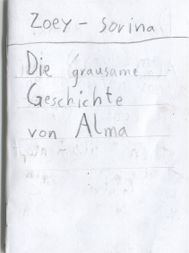 Zoey - Sorina
Die grausame
Geschichte
von Alma